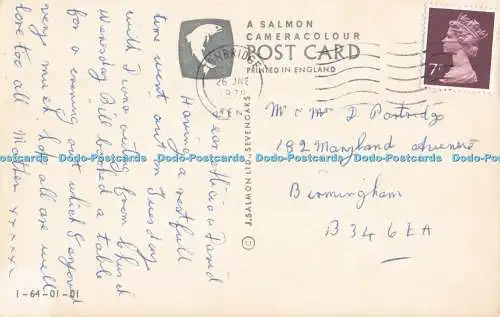 Dear Thelia & David
Having a restfull
time went out on Tuesday
with Diana outing from Church
Wensday Bill booked a table
for a evening out which I enjoyed
very much, hope all are well,
love too all Mother xxxxx
1-64-01-01
A SALMON
CAMERACOLOUR
POST CARD
PRINTED IN ENGLAND
J. SALMON LTD., SEVENOAKS ©
NBRIDGE
26 JNE
KENT
7P
Mr & Mrs D. Partridge
182 Maryland Avenue
Birmingham
B34 6EA
Dodo-Postcards Dodo-Postcards Dodo-Postcards Dodo-Postcards Dodo-Postcards Dodo-Postcards